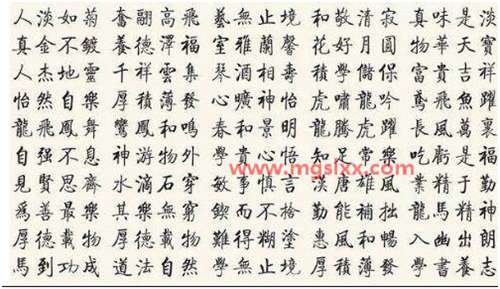 人淡如菊 奮翮高飛 藝無止境 和敬清寂 真味是淡
真金不鍍 養德澤福 室雅蘭馨 花好月圓 物華天寶
人杰地靈 千祥雲集 琴酒相壽 學儲保 富貴吉祥
怡然自樂 厚積薄發 心曠神怡 虎嘯龍吟 鳶飛魚躍
龍飛鳳舞 鸞鳳和鳴 春和景明 龍騰虎躍 長風萬裏
自强不息 神游物外 學貴心悟 知足常樂 吃虧是福
見賢思齊 水滴石穿 敏事慎言 漢唐雄風 業精于勤
爲善最樂 其樂無窮 鍥而不捨 勤能補拙 龍馬精神
厚德載物 難得糊塗 惠風和暢 入幽出朗
馬到功成 道法自然 學無止境 厚積薄發 學書養志
www.mgslxx.com